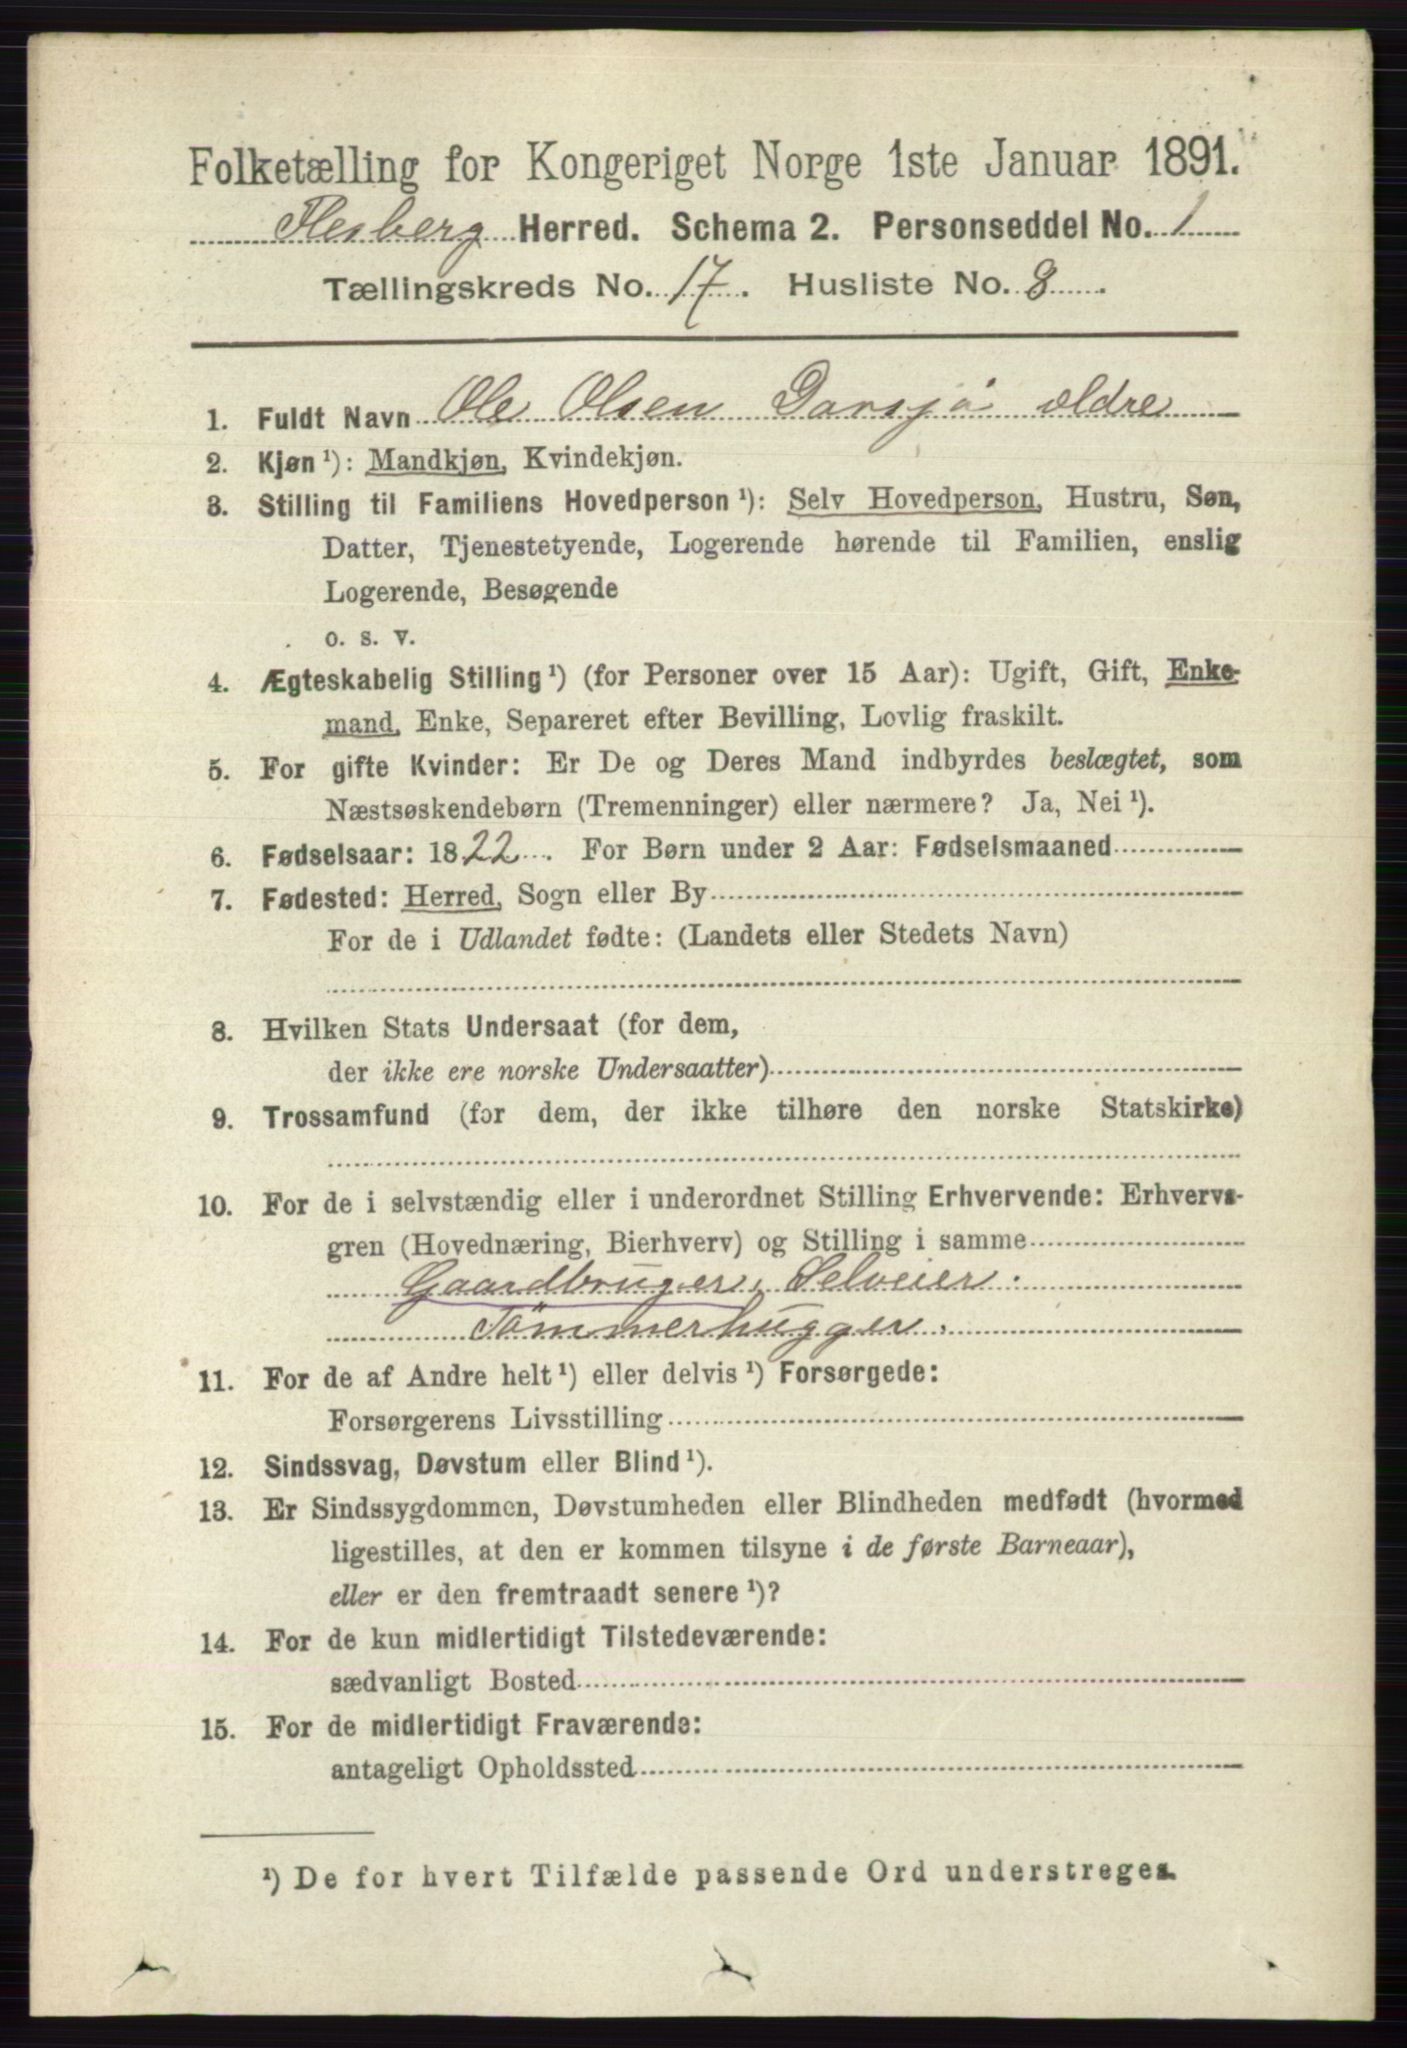 Folketælling for Kongeriget Norge 1ste Januar 1891.
Flesberg Herred. Schema 2. Personseddel No. 1
Tællingskreds No. 17. Husliste No. 8.
1. Fuldt Navn Ole Olsen Davsjø ældre
2. Kjøn¹): Mandkjøn, Kvindekjøn.
3. Stilling til Familiens Hovedperson¹): Selv Hovedperson, Hustru, Søn,
Datter, Tjenestetyende, Logerende hørende til Familien, enslig
Logerende, Besøgende
o. s. v.
4. Ægteskabelig Stilling¹) (for Personer over 15 Aar): Ugift, Gift, Enke-
mand, Enke, Separeret efter Bevilling, Lovlig fraskilt.
5. For gifte Kvinder: Er De og Deres Mand indbyrdes beslægtet, som
Næstsøskendebørn (Tremenninger) eller nærmere? Ja, Nei¹).
6. Fødselsaar: 1822. For Børn under 2 Aar: Fødselsmaaned
7. Fødested: Herred, Sogn eller By
For de i Udlandet fødte: (Landets eller Stedets Navn)
8. Hvilken Stats Undersaat (for dem,
der ikke ere norske Undersaatter)
9. Trossamfund (for dem, der ikke tilhøre den norske Statskirke)
10. For de i selvstændig eller i underordnet Stilling Erhvervende: Erhvervs-
gren (Hovednæring, Bierhverv) og Stilling i samme
Gaardbruger, Selveier.
Tömmerhugger.
11. For de af Andre helt¹) eller delvis¹) Forsørgede:
Forsørgerens Livsstilling
12. Sindssvag, Døvstum eller Blind¹).
13. Er Sindssygdommen, Døvstumheden eller Blindheden medfødt (hvormed
ligestilles, at den er kommen tilsyne i de første Barneaar),
eller er den fremtraadt senere¹)?
14. For de kun midlertidigt Tilstedeværende:
sædvanligt Bosted
15. For de midlertidigt Fraværende:
antageligt Opholdssted
¹) De for hvert Tilfælde passende Ord understreges.